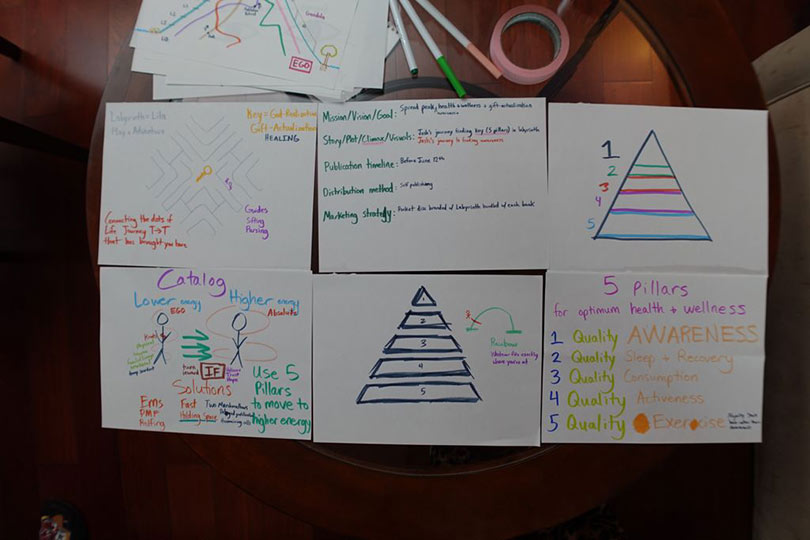 EGO
Labyrinth = Life
Map = Adventure
Key = God-Realization
Gift-Actualization
HEALING
Connecting the dots of
Life Journey T→T
that has brought you here
Guides
Sifting
Parsing
Mission/Vision/Goal: Spread peak, health + wellness + gift-actualization
Story/Plot/Climax/Visuals: Josh's journey finding key (5 pillars) in labyrinth
Josh's journey to finding awareness
Publication timeline: Before June 12th
Distribution method: Self publishing
Marketing strategy: Pocket disc branded of Labyrinth bundled of each book
1
2
3
4
5
Catalog
Lower energy
EGO
Higher energy
Absolute
IF
Solutions
Ems
PMF
Rolfing
Fast
Two Marshmallows
Holding Space
Use 5
Pillars
to move to
higher energy
1
2
3
4
5
Rainbow
5 Pillars
for optimum health + wellness
1 Quality AWARENESS
2 Quality Sleep + Recovery
3 Quality Consumption
4 Quality Activeness
5 Quality Exercise